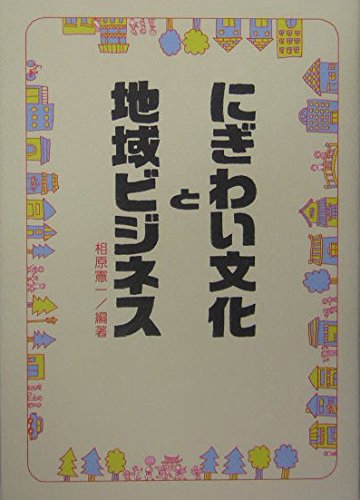 にぎわい文化
と
地域ビジネス
相原憲一／編著